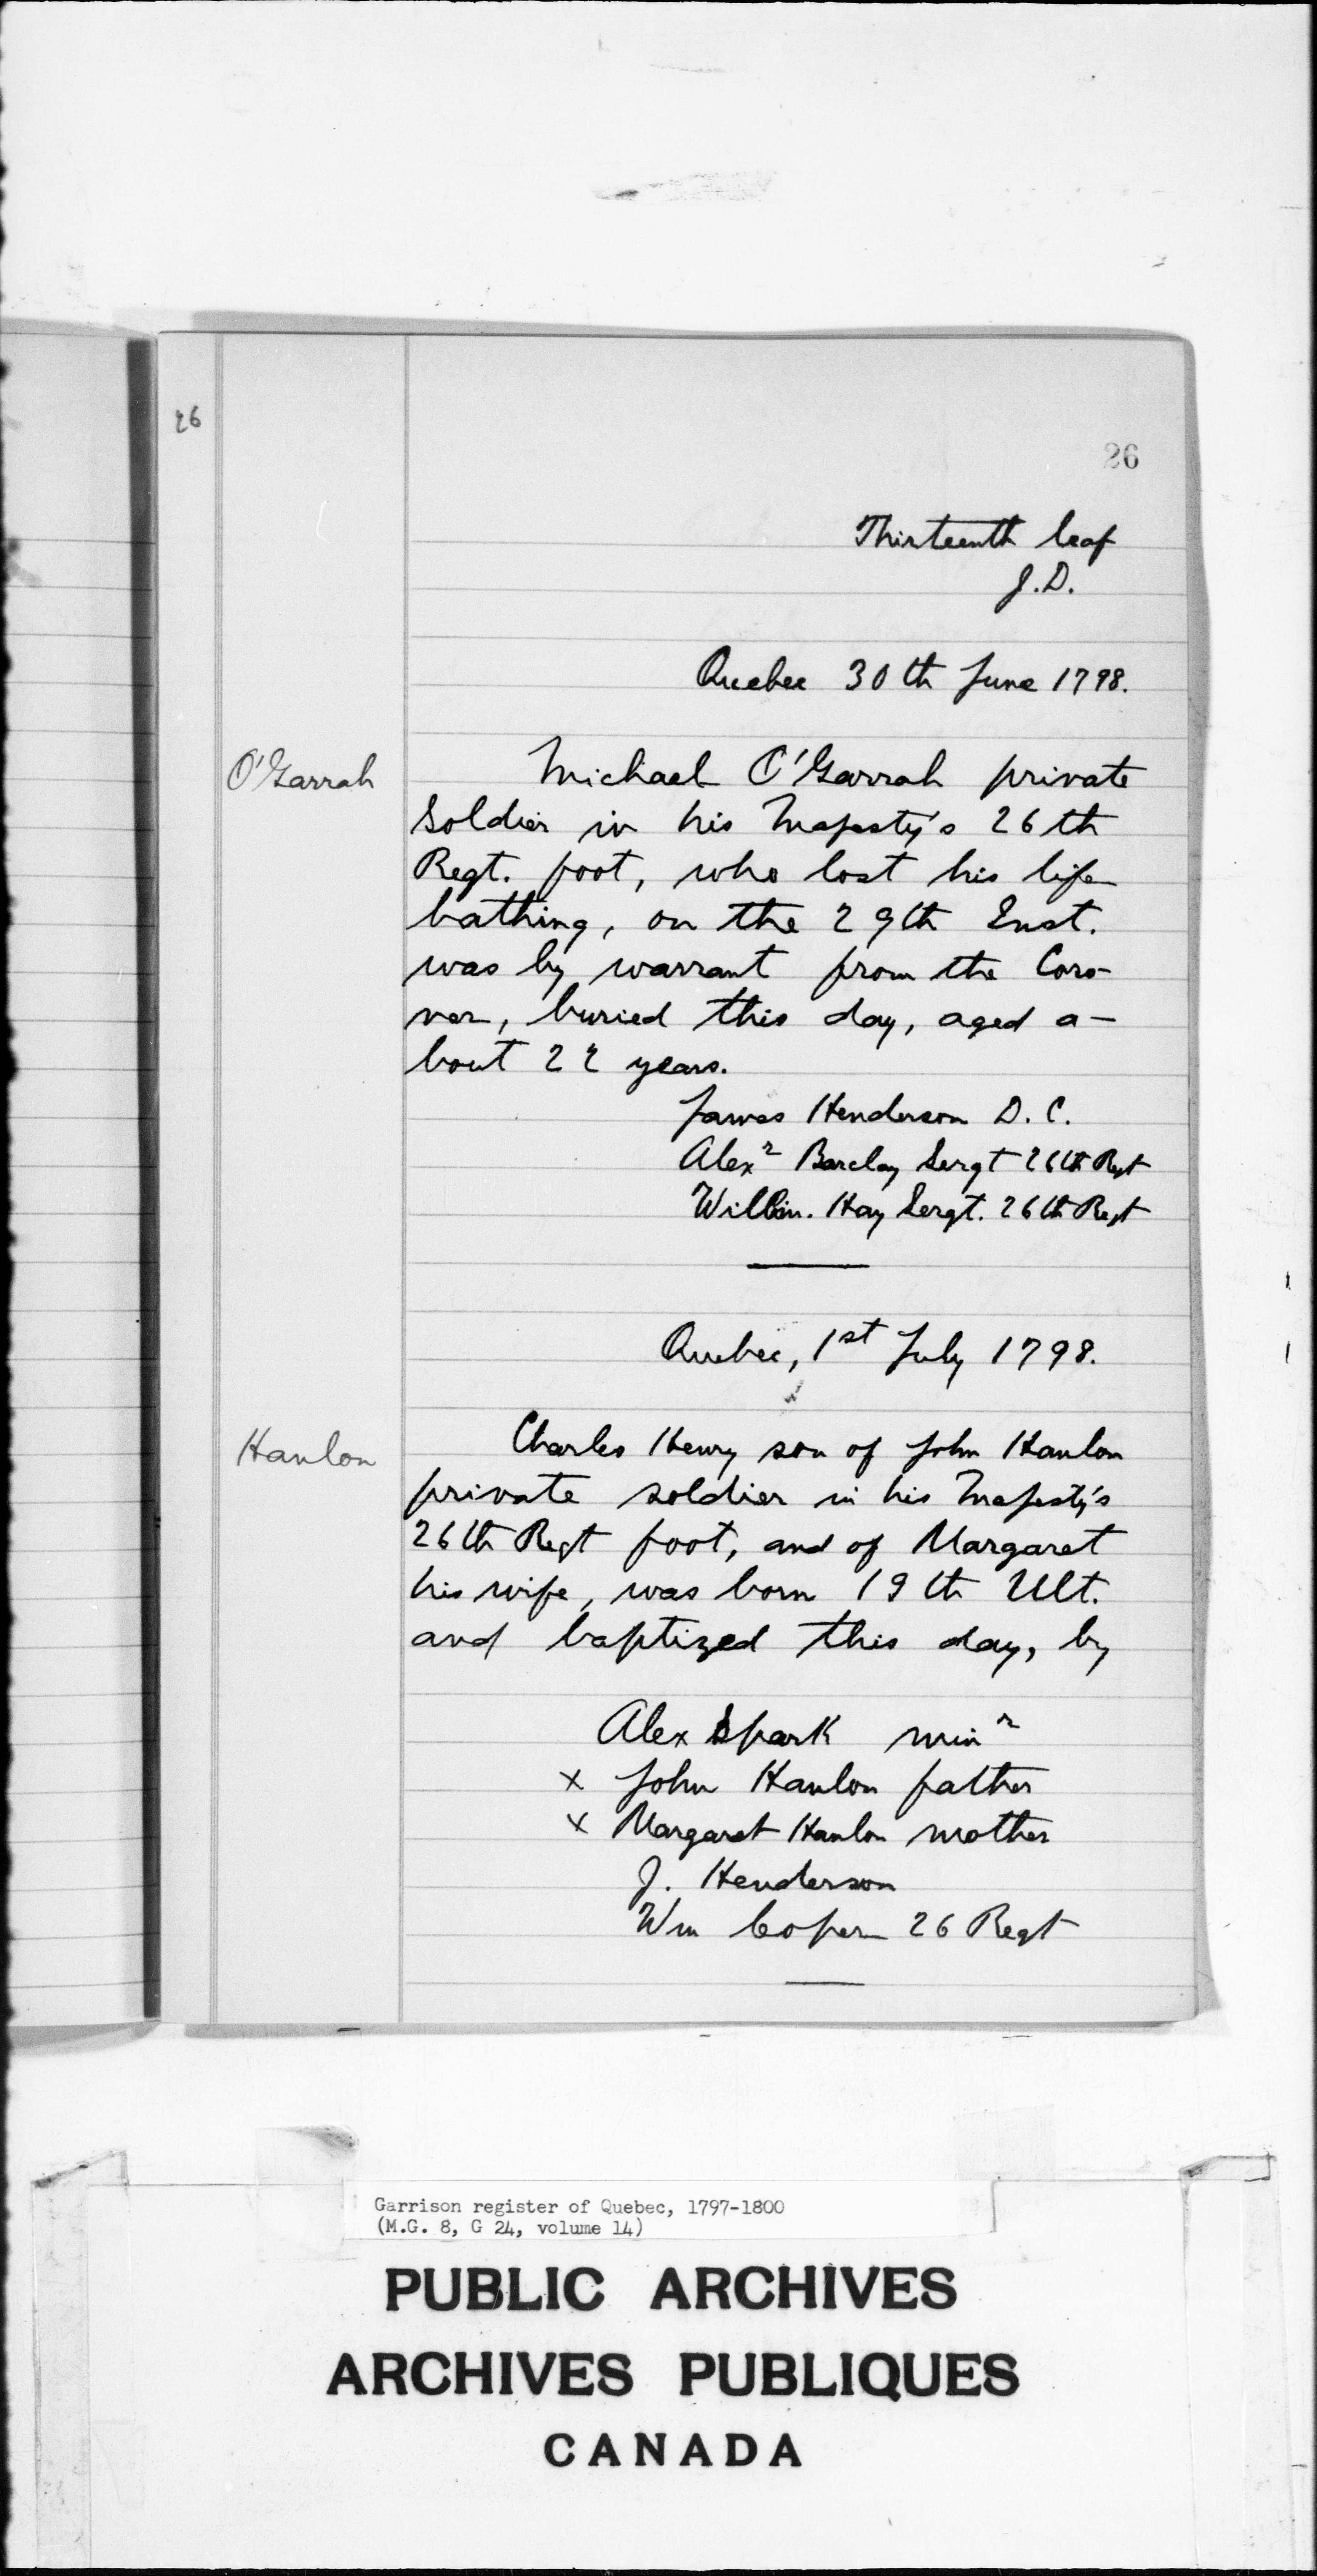 26
26
Thirteenth leaf
J.D.
Quebec 30th June 1798.
O'Garrah
Michael O'Garrah private
Soldier in his Majesty's 26th
Regt. foot, who lost his life
bathing, on the 29th Inst.
was by warrant from the Coro-
ner, buried this day, aged a-
bout 22 years.
James Henderson D. C.
Alexr Barclay Sergt 26th Regt
Willm. Hay Sergt. 26th Regt
Quebec, 1st July 1798.
Hanlon
Charles Henry son of John Hanlon
private soldier in his Majesty's
26th Regt foot, and of Margaret
his wife, was born 19th Ult.
and baptized this day, by
Alex Spark minr
x John Hanlon father
x Margaret Hanlon mother
J. Henderson
Wm Coper 26 Regt
Garrison register of Quebec, 1797-1800
(M.G. 8, G 24, volume 14)
PUBLIC ARCHIVES
ARCHIVES PUBLIQUES
CANADA